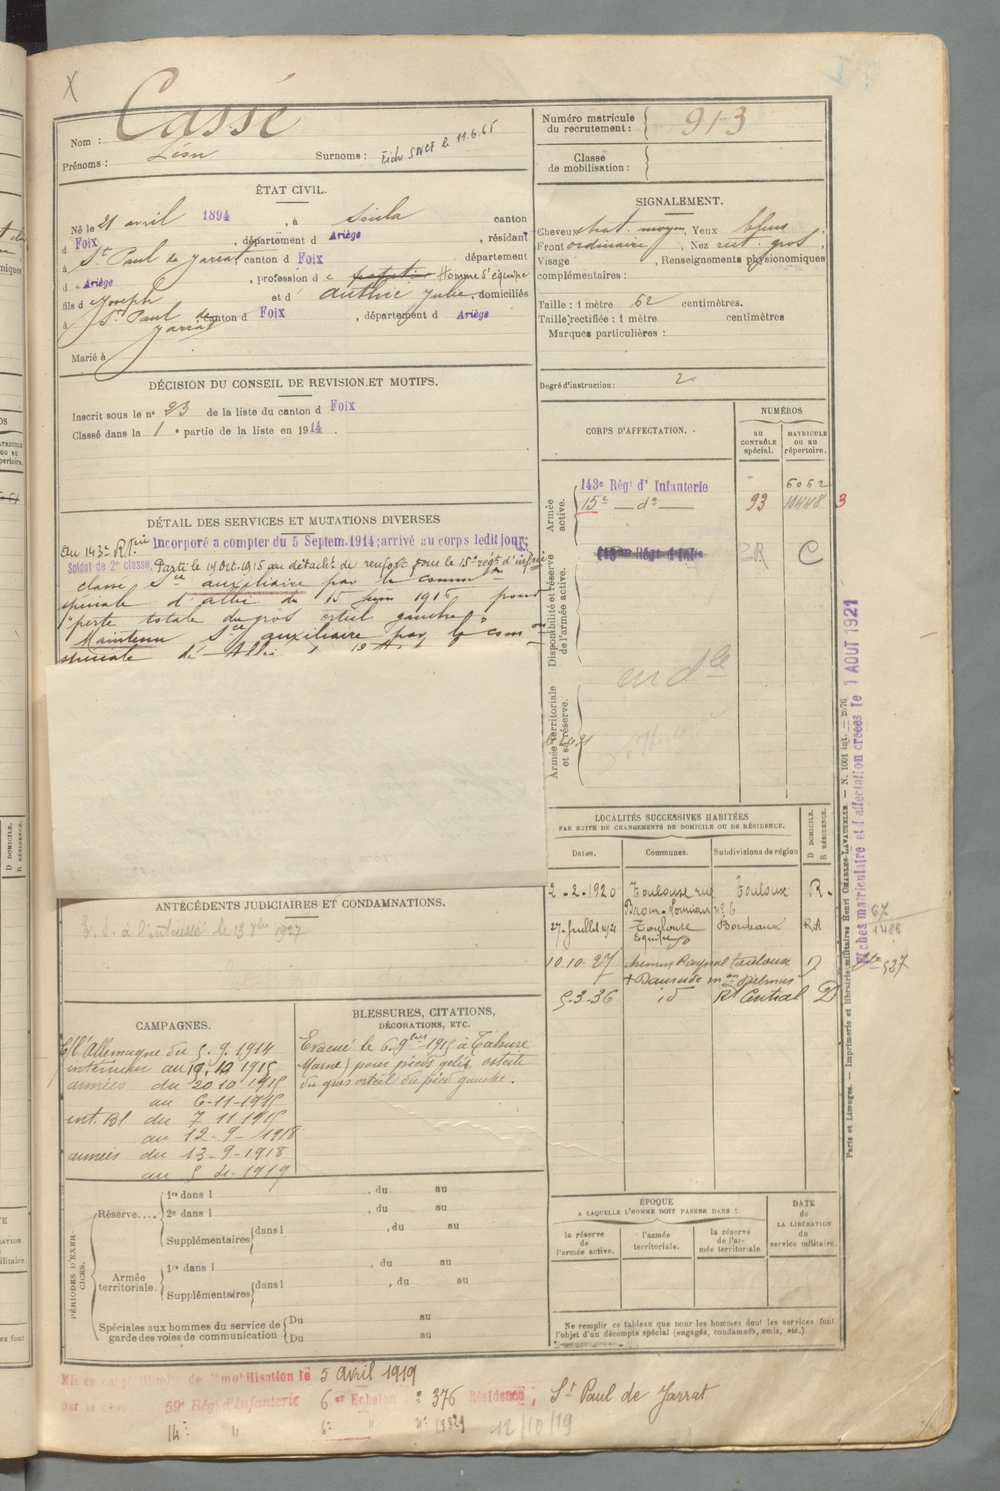 X
Nom : Cassé
Prénoms : Léon Surnoms : Fiche SNCF le 11.6.65
Numéro matricule du recrutement : 913
Classe de mobilisation :
ÉTAT CIVIL.
Né le 21 avril 1894, à Soula canton
d Foix, département d Ariège, résidant
à St Paul de Jarrat canton d Foix département
d e Ariège, profession d e Homme d'équipe
fils d e Joseph et d' Authié Julie, domiciliés
à St Paul de Jarrat, canton d Foix, département d Ariège
Marié à
SIGNALEMENT.
Cheveux chat. moyen, Yeux bleus,
Front ordinaire, Nez rect. gros,
Visage , Renseignements physionomiques
complémentaires :
Taille : 1 mètre 62 centimètres.
Taille rectifiée : 1 mètre centimètres
Marques particulières :
Degré d'instruction : 2
DÉCISION DU CONSEIL DE REVISION ET MOTIFS.
Inscrit sous le n° 23 de la liste du canton d Foix
Classé dans la 1e partie de la liste en 1914.
DÉTAIL DES SERVICES ET MUTATIONS DIVERSES
Au 143e R.I. Incorporé a compter du 5 Septem. 1914; arrivé au corps ledit jour;
Soldat de 2e classe, Parti le 19 Oct. 1915 au détacht de renfort pour le 15e régt d'infrie
classé Sce auxiliaire par la common
spéciale d'Albi du 15 Juin 1916 pour
"perte totale du gros orteil gauche"
Maintenu Sce auxiliaire par la comon
spéciale de Albi
CORPS D'AFFECTATION.
NUMÉROS
AU CONTRÔLE spécial.
MATRICULE ou au répertoire.
Armée active.
143e Régt d' Infanterie 6062
15e — do — 93 10448 3
Disponibilité et réserve de l'armée active.
C
en dle
Armée territoriale et sa réserve.
Fiches matriculaire et d'affectation créées le 1 AOUT 1921
LOCALITÉS SUCCESSIVES HABITÉES
PAR SUITE DE CHANGEMENTS DE DOMICILE OU DE RÉSIDENCE.
Dates. Communes. Subdivisions de région D DOMICILE. R RÉSIDENCE.
2-2-1920 Toulouse rue Toulouse R.
n° 6
27 Juillet 1921 Toulouse Bordeaux RA
10.10.27 chemin Raynal Toulouse D
5-3-36 id Rt Central D
67
1488
527
ANTÉCÉDENTS JUDICIAIRES ET CONDAMNATIONS.
CAMPAGNES.
C/ l'Allemagne du 5.9.1914
intérieur au 19.10 1915
armées du 20 10 1915
au 6-11-1915
int. Bl du 7 11 1915
au 12-9-1918
armées du 13-9-1918
au 5 4-1919
BLESSURES, CITATIONS, DÉCORATIONS, ETC.
Evacué le 6 9bre 1915 à Tahure
(Marne) pour pieds gelés, ostéite
du gros orteil du pied gauche.
PÉRIODES D'EXERCICES.
Réserve.... 1re dans l , du au
2e dans l , du au
Supplémentaires dans l , du au
Armée territoriale. 1re dans l , du au
Supplémentaires dans l , du au
Spéciales aux hommes du service de garde des voies de communication Du au
Du au
ÉPOQUE
A LAQUELLE L'HOMME DOIT PASSER DANS :
la réserve de l'armée active.
l'armée territoriale.
la réserve de l'armée territoriale
DATE de LA LIBÉRATION du service militaire.
Ne remplir ce tableau que pour les hommes dont les services font
l'objet d'un décompte spécial (engagés, condamnés, omis, etc.).
Paris et Limoges. — Imprimerie et librairie militaires Henri CHARLES-LAVAUZELLE.
Mis en congé illimité de démobilisation le 5 avril 1919
59e Rég. d'Infanterie 6e Echelon n° 376 Résidence, St Paul de Jarrat
14e " 6e " n° 18829 12/10/19